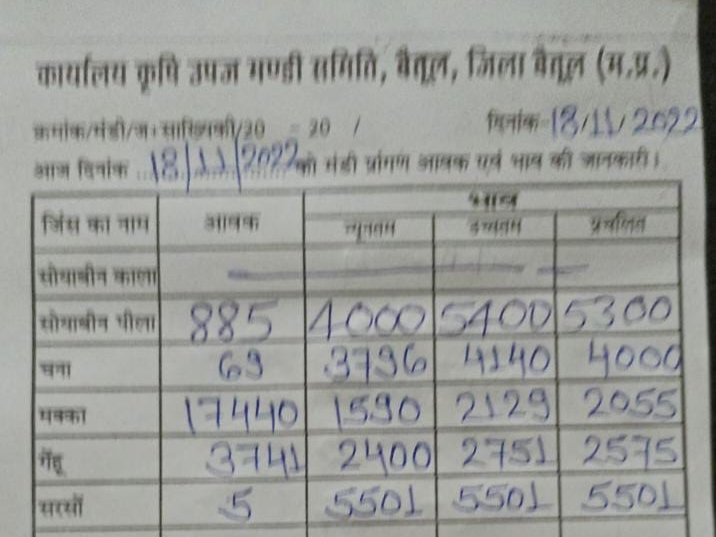 कार्यालय कृषि उपज मण्डी समिति, बैतूल, जिला बैतूल (म.प्र.)
क्रमांक/मंडी/ज. सांख्यिकी/20 - 20 / दिनांक 18/11/2022
आज दिनांक 18/11/2022 को मंडी प्रांगण आवक एवं भाव की जानकारी।
भाव
जिंस का नाम आवक न्यूनतम उच्चतम प्रचलित
सोयाबीन काला
सोयाबीन पीला 885 4000 5400 5300
चना 69 3796 4140 4000
मक्का 17440 1590 2129 2055
गेंहू 3741 2400 2751 2575
सरसों 5 5501 5501 5501